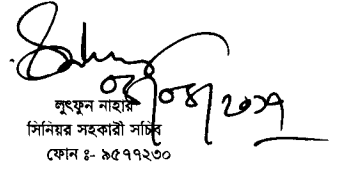 ০৪/০৪/২০১৭
লুৎফুন নাহার
সিনিয়র সহকারী সচিব
ফোন ঃ- ৯৫৭৭২৩০